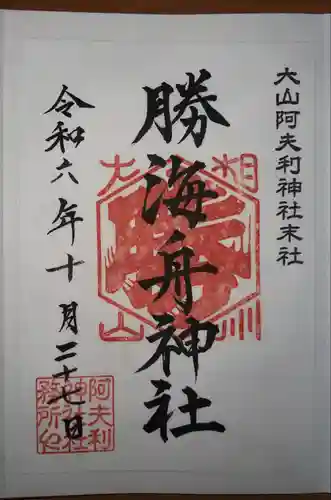 大山阿夫利神社末社
勝海舟神社
令和六年十月二十七日
相州
大山
阿夫利
神社社
務所之